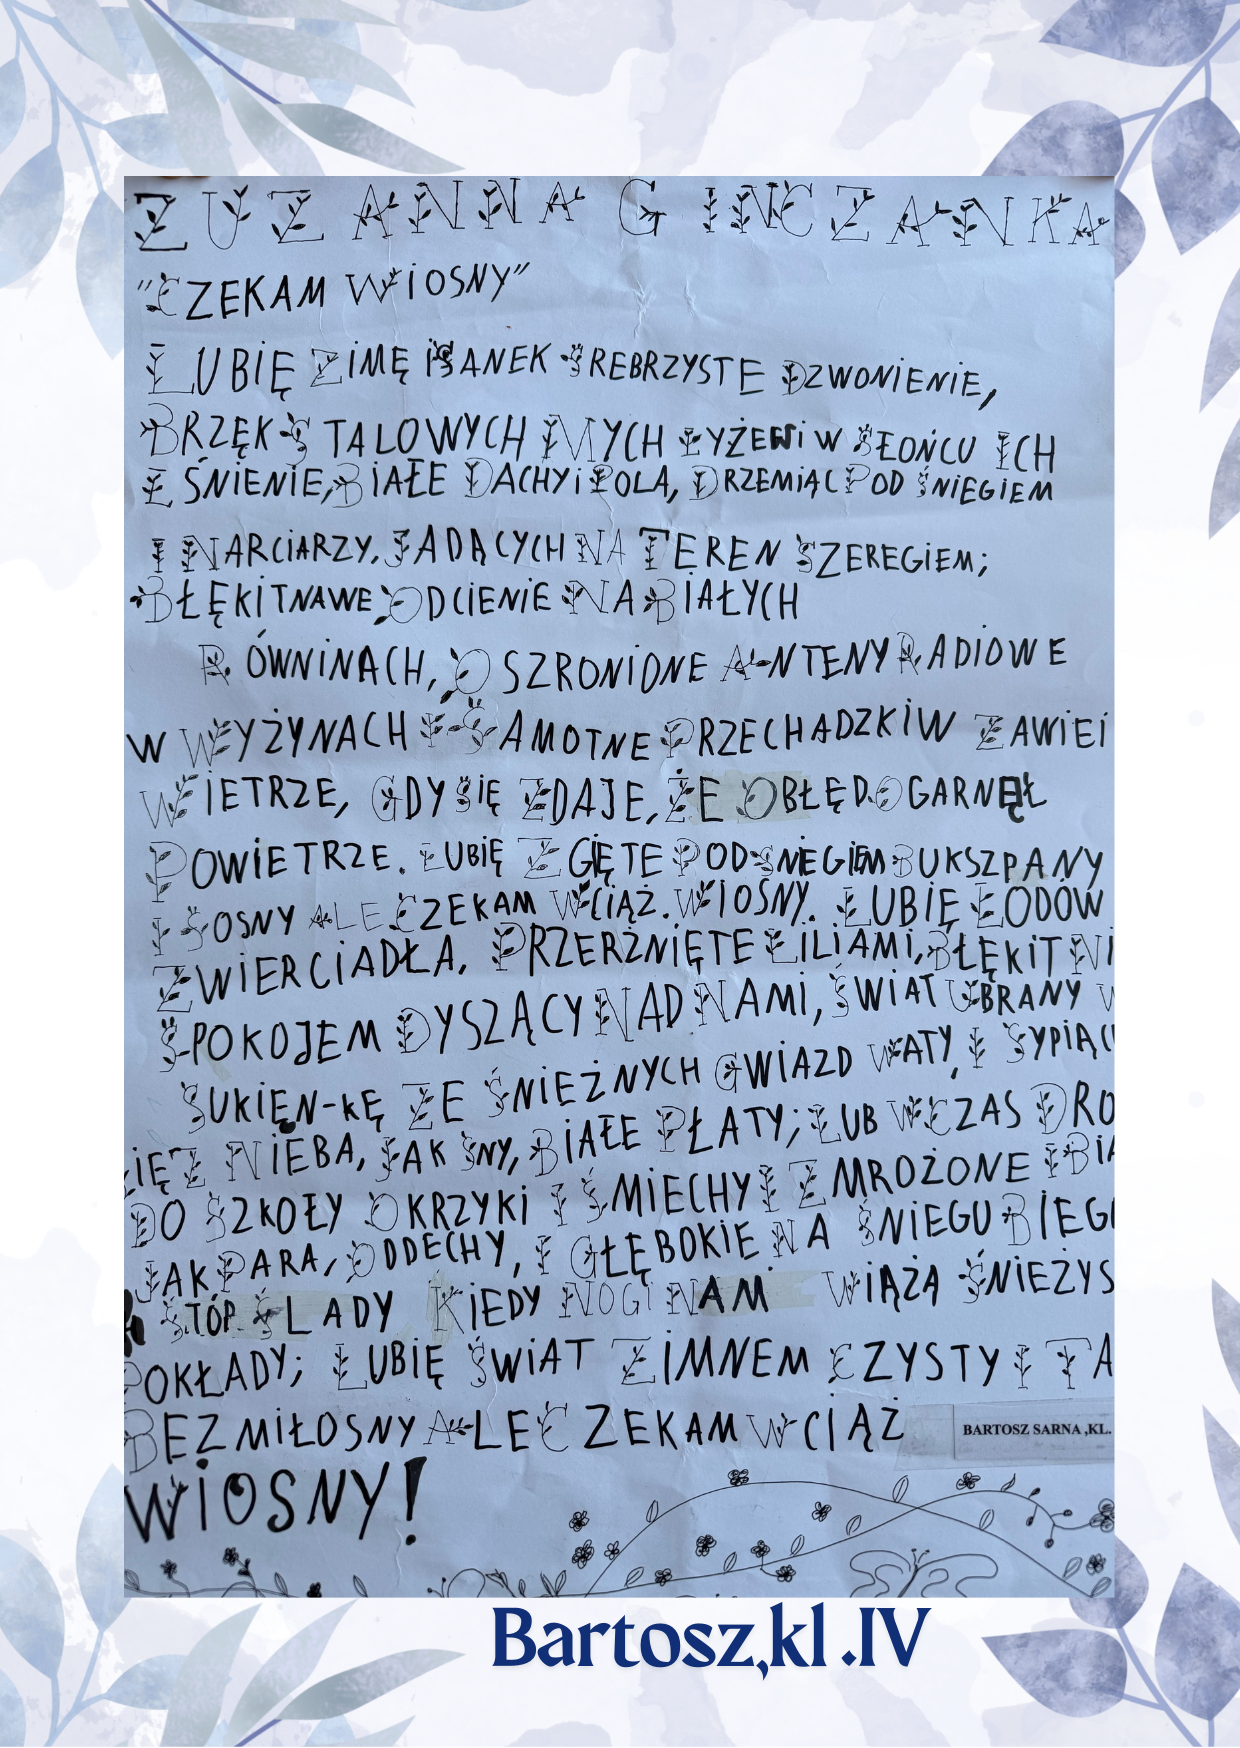 ZUZANNA GINCZANKA
"CZEKAM WIOSNY"
LUBIĘ ZIMĘ I SANEK SREBRZYSTE DZWONIENIE,
BRZĘK STALOWYCH MYCH ŁYŻEW I W SŁOŃCU ICH
LŚNIENIE, BIAŁE DACHY I POLA, DRZEMIĄC POD ŚNIEGIEM
I NARCIARZY, JADĄCYCH NA TEREN SZEREGIEM;
BŁĘKITNAWE ODCIENIE NA BIAŁYCH
RÓWNINACH, OSZRONIONE ANTENY RADIOWE
W WYŻYNACH I SAMOTNE PRZECHADZKI W ZAWIEI
WIETRZE, GDY SIĘ ZDAJE, ŻE OBŁĘD OGARNĘŁ
POWIETRZE. LUBIĘ ZGIĘTE POD ŚNIEGIEM BUKSZPANY
I SOSNY ALE CZEKAM WCIĄŻ. WIOSNY. LUBIĘ LODÓW
ZWIERCIADŁA, PRZERŻNIĘTE LILIAMI, BŁĘKIT NI
SPOKOJEM DYSZĄCY NAD NAMI, ŚWIAT UBRANY W
SUKIEN-KĘ ZE ŚNIEŻNYCH GWIAZD WATY, I SYPIĄC
IĘ Z NIEBA, JAK SNY, BIAŁE PŁATY; LUB W CZAS DRO
DO SZKOŁY OKRZYKI I ŚMIECHY I ZMROŻONE I BIA
JAK PARA, ODDECHY, I GŁĘBOKIE NA ŚNIEGU BIEG
STÓP ŚLADY KIEDY NOGI NAM WIĄŻĄ ŚNIEŻYS
POKŁADY; LUBIĘ ŚWIAT ZIMNEM CZYSTY I TA
BEZMIŁOSNY ALE CZEKAM WCIĄŻ
BARTOSZ SARNA ,KL.
WIOSNY!
Bartosz,kl .IV